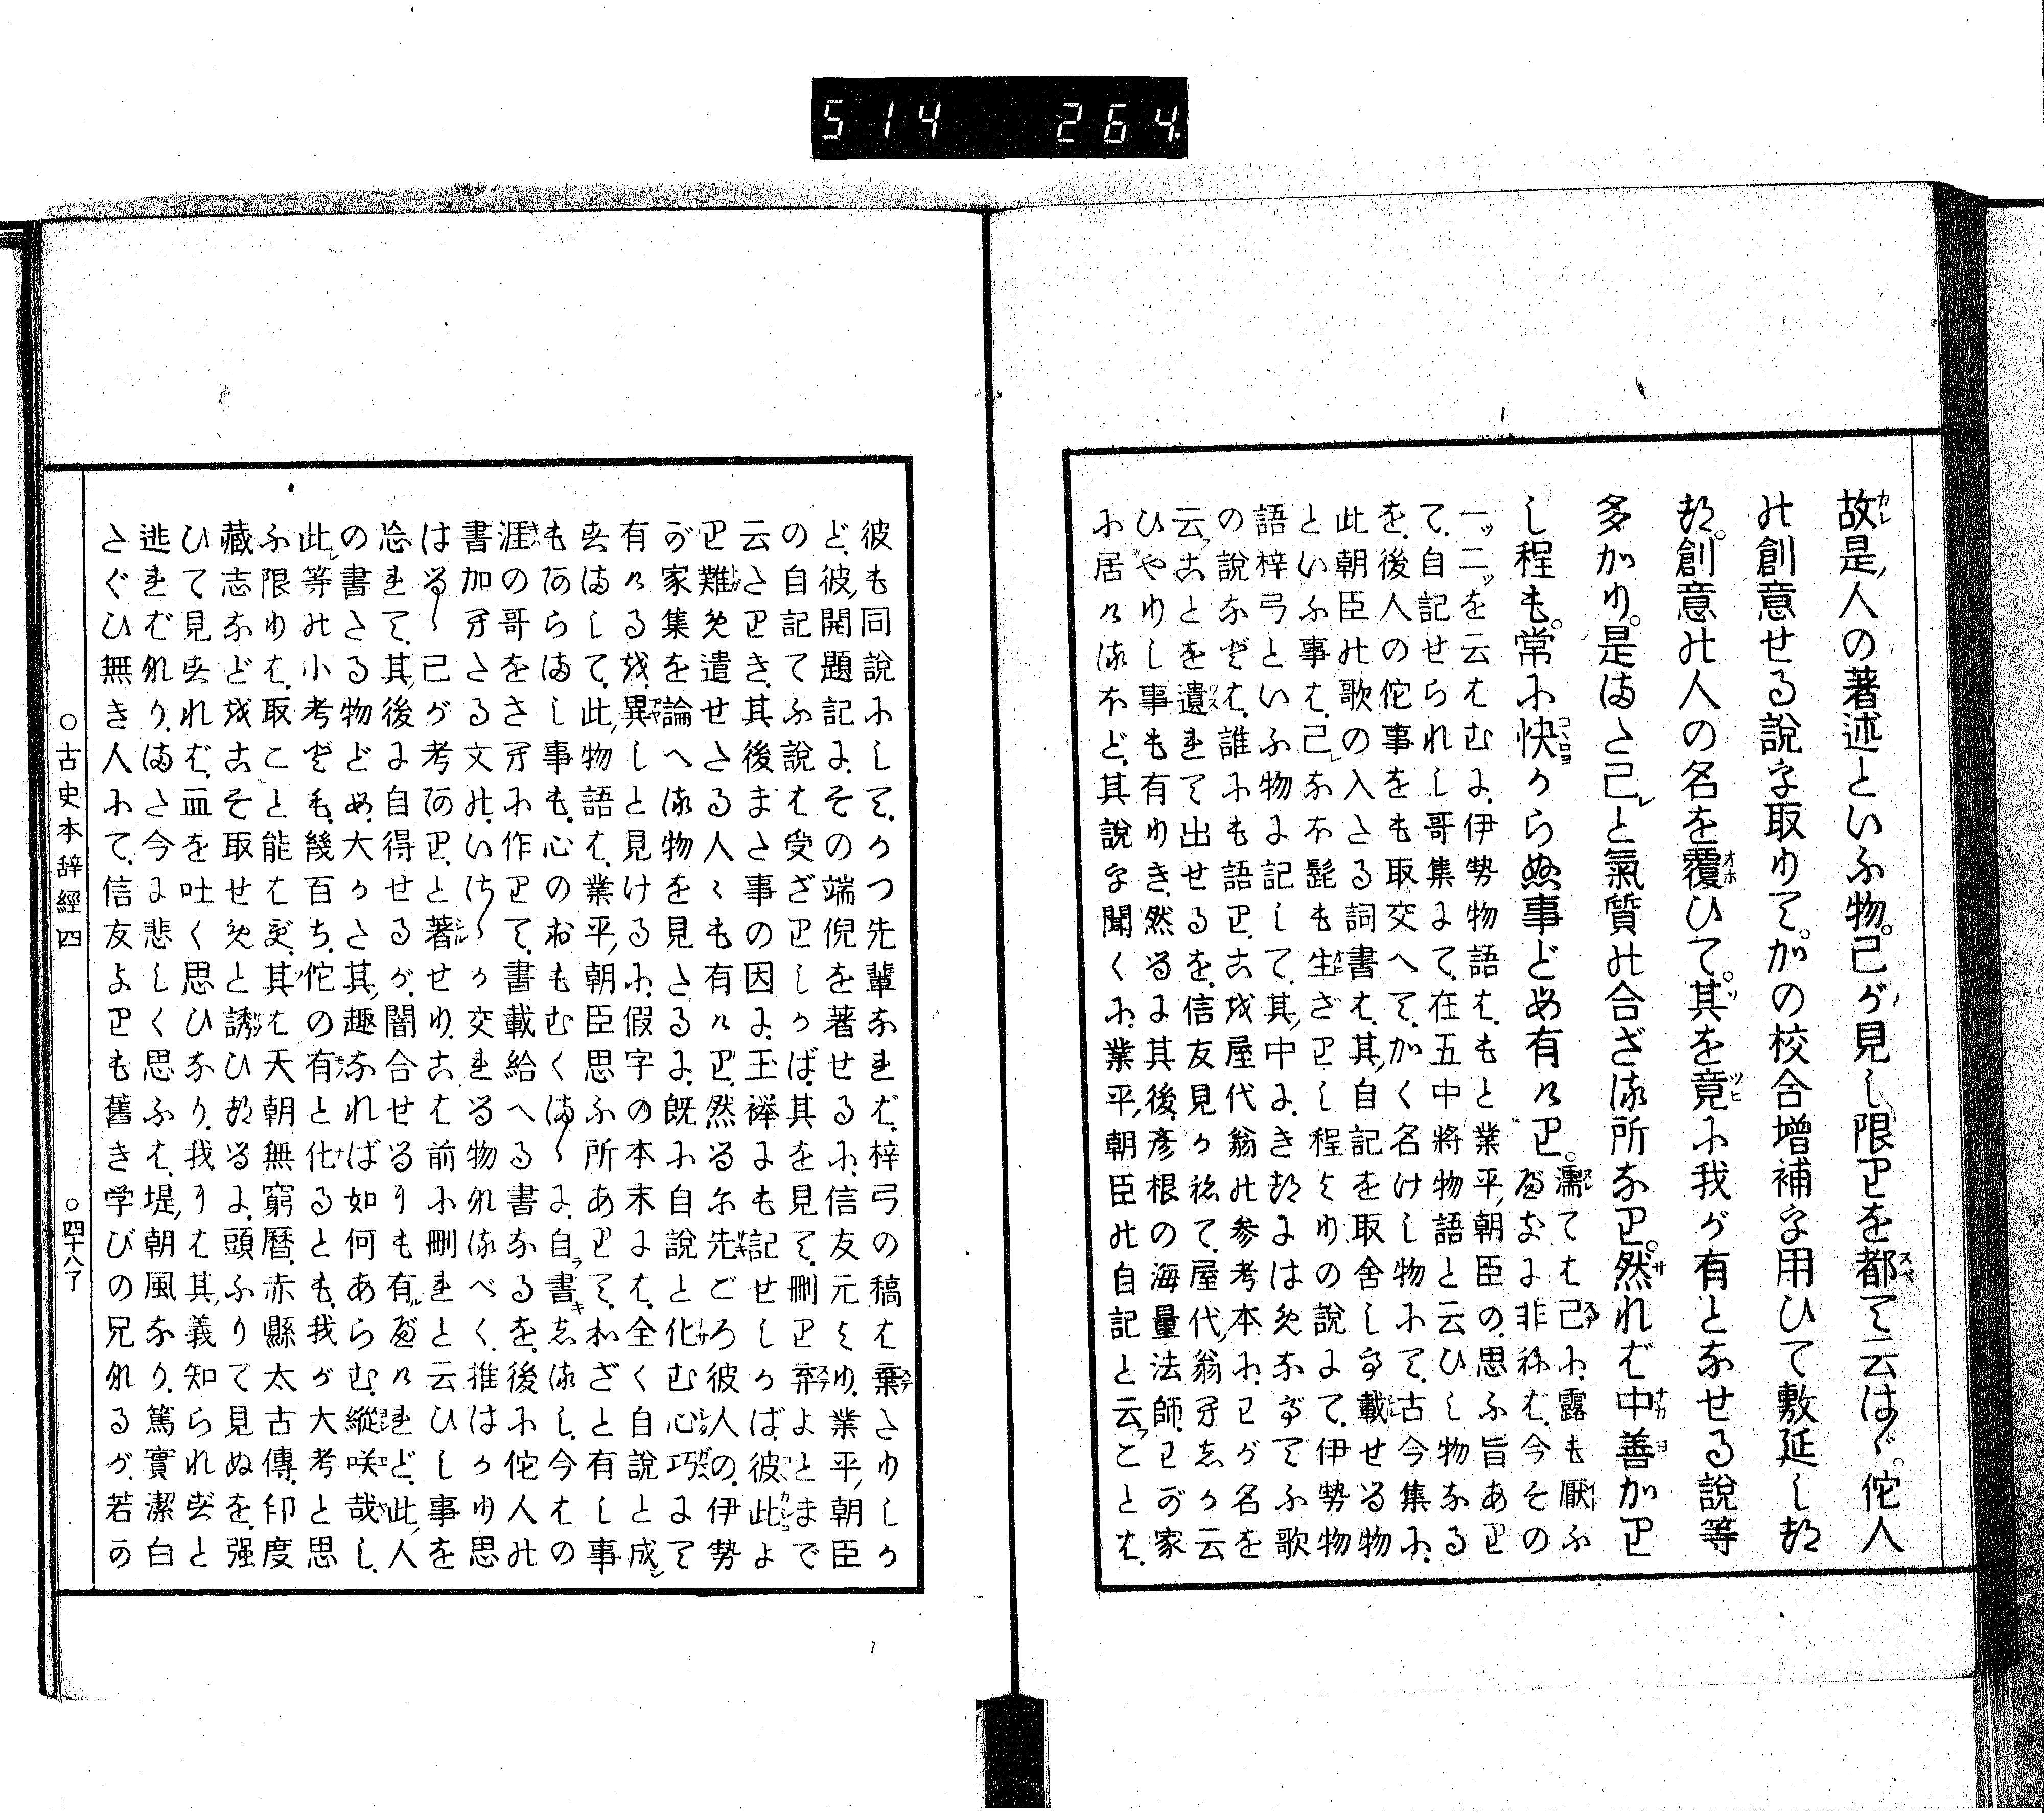 514 264.
故是人の著述といふ物。己が見し限りを都て云はゞ。佗人
の創意せる説を取りて。かの校合増補を用ひて敷延し
創意の人の名を覆ひて。其を竟に我が有となせる説等
多かり。是また己と氣質の合ざる所なり。然れば中善かり
し程も。常に快からぬ事ども有けり。
濡てば己に露も厭ふ
非ねば、今その
一ッ二ッを云はむに、伊勢物語は、もと業平朝臣の、思ふ旨あり
て、自記せられし哥集にて、在五中將物語と云ひし物なる
を、後人の佗事をも取交へて、かく名けし物にて、古今集に、
此朝臣の歌の入たる詞書は、其自記を取舍して載せる物
といふ事は、己なほ髭も生ざりし程よりの説にて、伊勢物
語梓弓といふ物に記して、其中に
の説なぞは、誰にも語り、こを屋代翁の参考本に、己が名を
云ことを遺れて出せるを、信友見かねて、屋代翁
ひやりし事も有りき、然るに其後彦根の海量法師、己が家
に居けるほど、其説を聞くに、業平朝臣の自記と云ことは、
彼も同説にして、かつ先輩なれば、梓弓の稿は棄たりしか
ど、彼開題記に、その端倪を著せるに、信友元より、業平朝臣
の自記てふ説は受ざりしかば、其を見て、刪り弃よとまで
云たりき、其後また事の因に、玉襷にも記せしかば、彼此よ
り難め遣せたる人々も有けり、然るに先ごろ彼人の、伊勢
が家集を論へる物を見たるに、既に自説と化む心巧にて
有けるを、異しと見けるに、假字の本末には、全く自説と成
はして、此物語は、業平朝臣思ふ所ありて、わざと有し事
もあらまし事も、心のおもむくまゝに、自書志るし、今はの
涯の哥をさへに作りて、書載給へる書なるを、後に佗人の
書加へたる文の、いけゝか交れる物なるべく、推はかり思
はるゝ己が考あり、と著せり、こは前に刪れと云ひし事を
忘れて、其後に自得せるが、闇合せるにも有べけれど、此人
の書たる物ども、大かた其趣なれば如何あらむ、縦咲哉し、
此等の小考ぞも、幾百ち、佗の有と化るとも、我が大考と思
ふ限りは、取こと能はじ、其は天朝無窮暦、赤縣太古傳、印度
藏志などをこそ取せめと誘ひ
るに、頭ふりて見ぬを、强
ひて見れば、血を吐く思ひなり、我には其義知られずと
逃れむれり、また今に悲しく思ふは、堤朝風なり、篤實潔白
たぐひ無き人にて、信友よりも舊き学びの兄なるが、若か
○古史本辞經四
○四十八丁